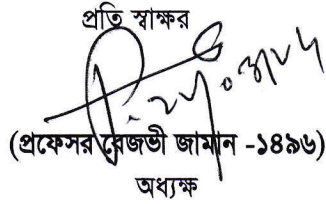 প্রতি স্বাক্ষর
(প্রফেসর রেজভী জামান -১৪৯৬)
অধ্যক্ষ